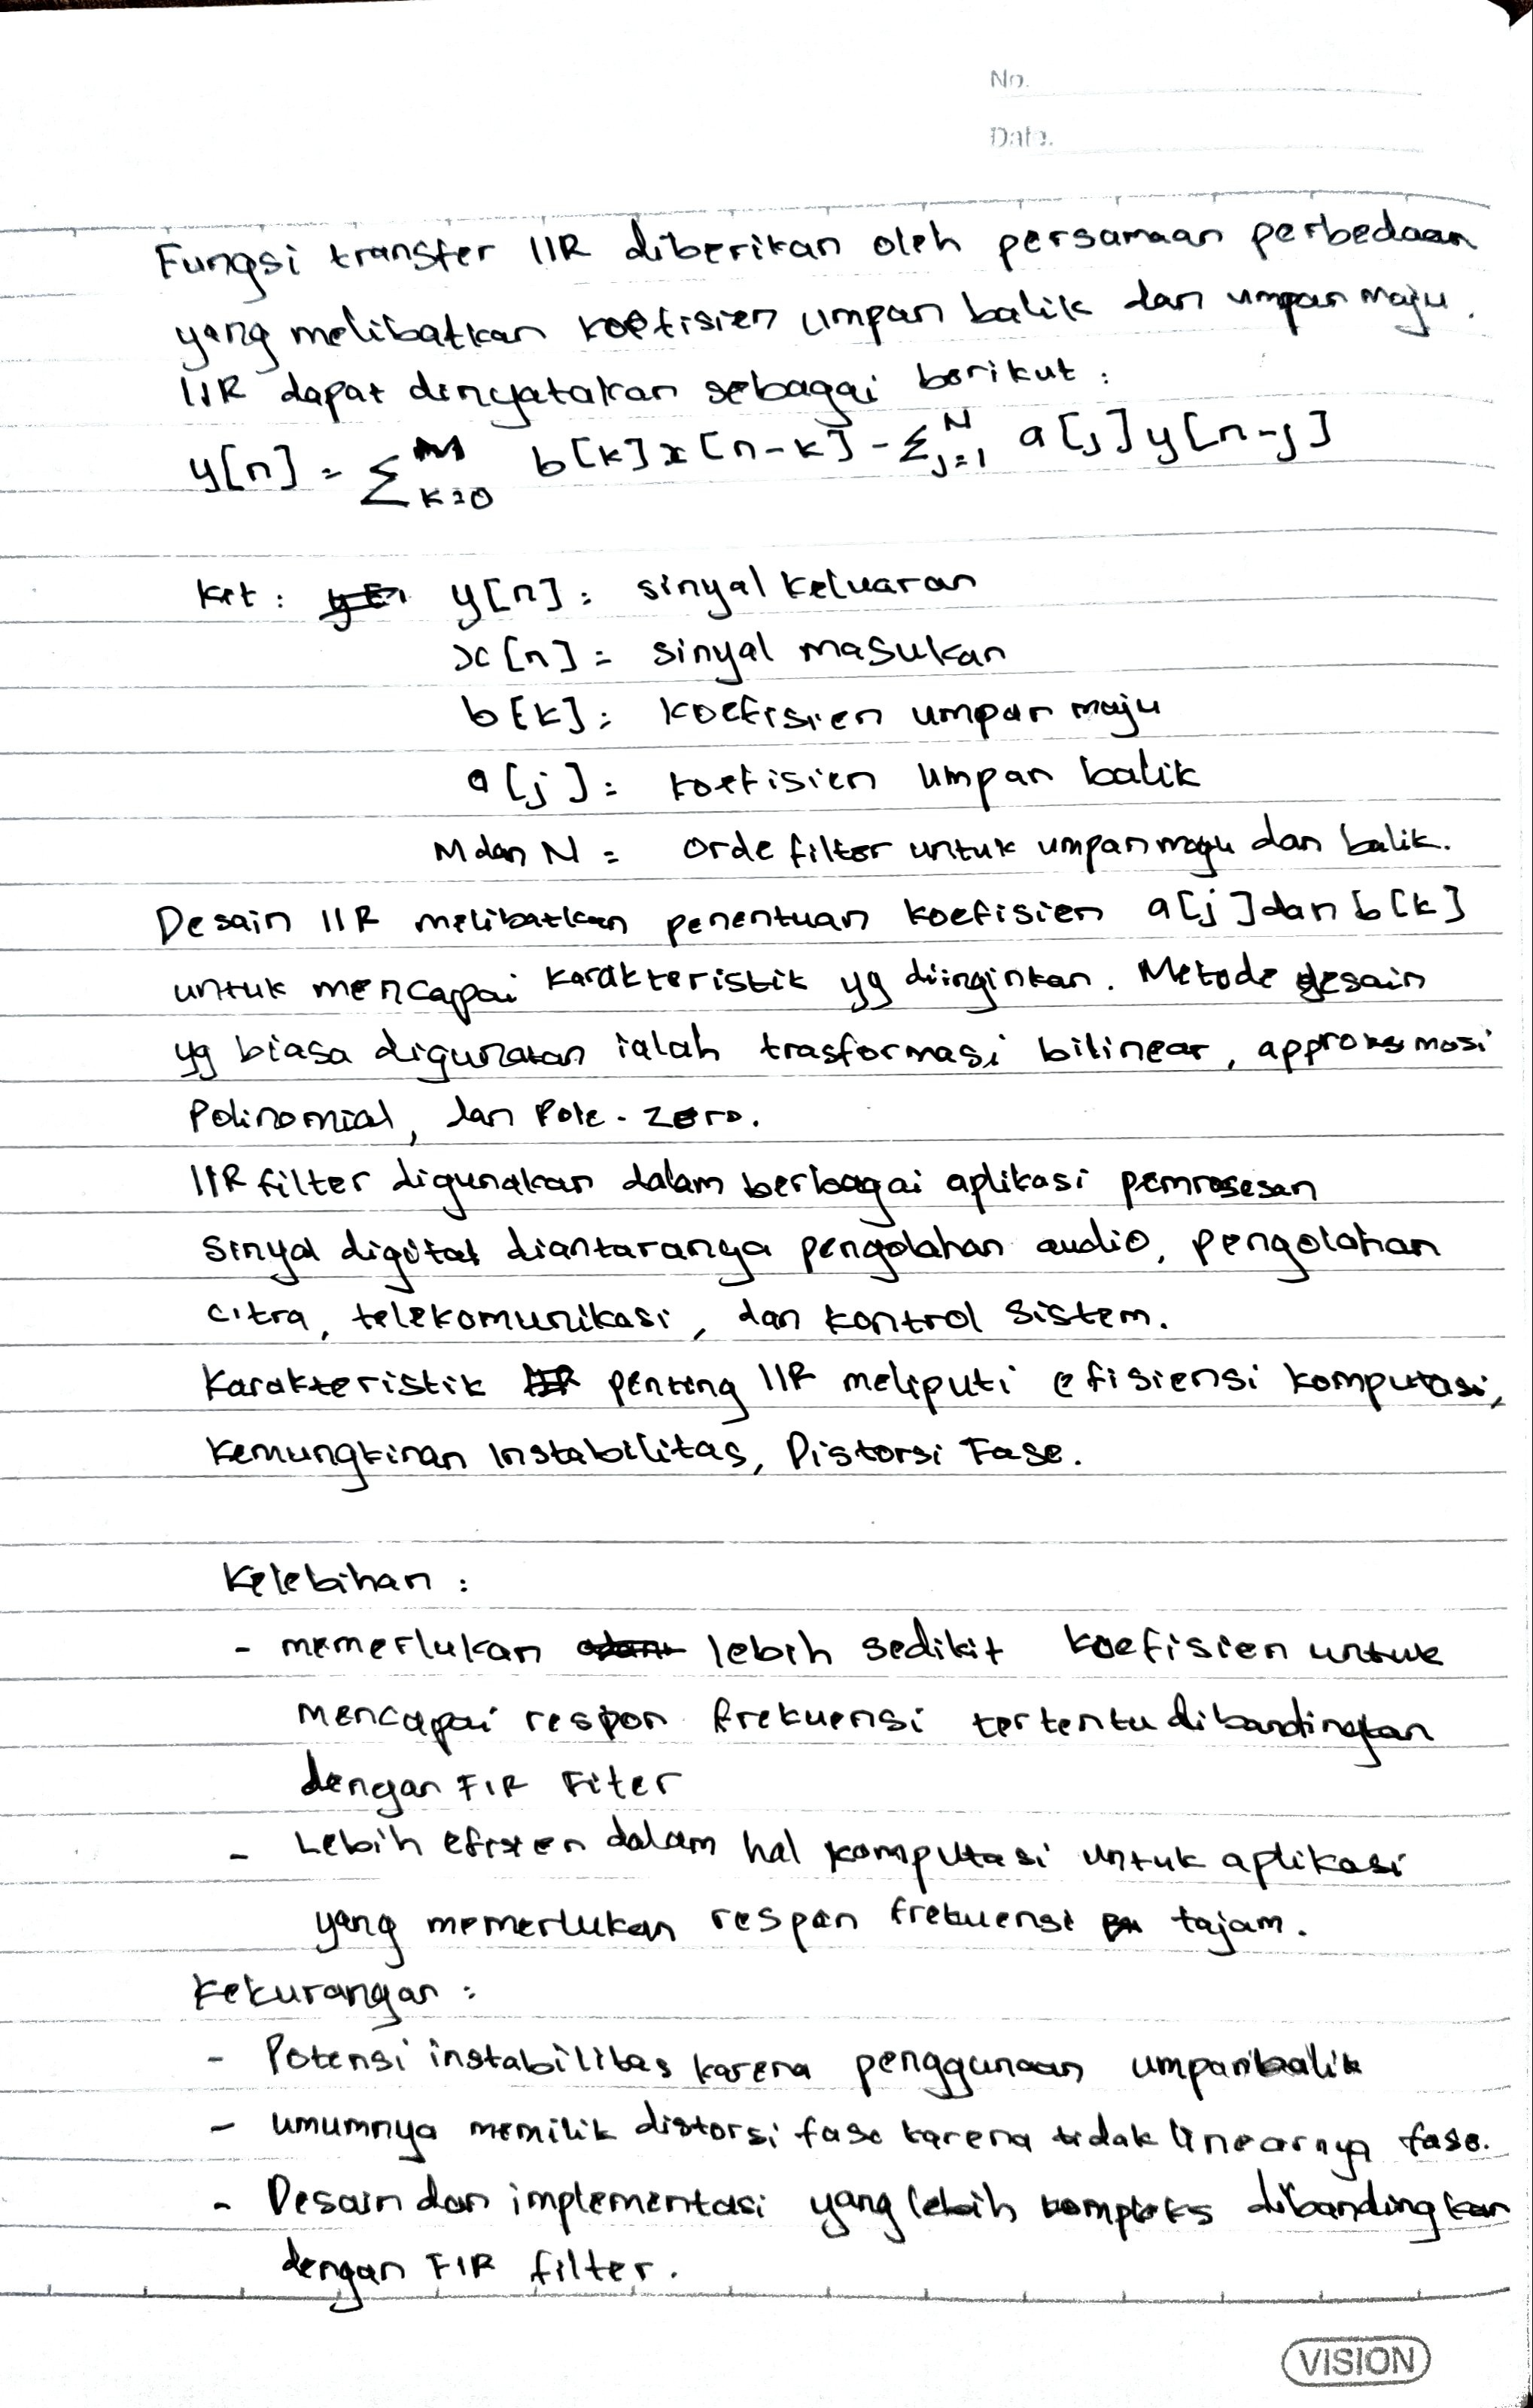 No.
Date.
Fungsi transfer IIR diberikan oleh persamaan perbedaan
yang melibatkan koefisien umpan balik dan umpan maju.
IIR dapat dinyatakan sebagai berikut :
y[n] = ∑ᴹk=0 b[k]x[n-k] - ∑ᴺj=1 a[j]y[n-j]
Ket : y[n] = sinyal keluaran
x[n] = sinyal masukan
b[k] = koefisien umpan maju
a[j] = koefisien umpan balik
M dan N = Orde filter untuk umpan maju dan balik.
Desain IIR melibatkan penentuan koefisien a[j] dan b[k]
untuk mencapai karakteristik yg diinginkan. Metode desain
yg biasa digunakan ialah trasformasi bilinear, approksmasi
Polinomial, dan Pole-zero.
IIR filter digunakan dalam berbagai aplikasi pemrosesan
sinyal digital diantaranya pengolahan audio, pengolahan
citra, telekomunikasi, dan kontrol sistem.
Karakteristik penting IIR meliputi efisiensi komputasi,
kemungkinan Instabilitas, Distorsi Fase.
Kelebihan :
- memerlukan lebih sedikit koefisien untuk
mencapai respon frekuensi tertentu dibandingkan
dengan FIR Fiter
- Lebih efisien dalam hal komputasi untuk aplikasi
yang memerlukan respon frekuensi tajam.
Kekurangan :
- Potensi instabilitas karena penggunaan umpan balik
- umumnya memilik distorsi fase karena tidak linearnya fase.
- Desain dan implementasi yang lebih kompleks dibandingkan
dengan FIR filter.
VISION